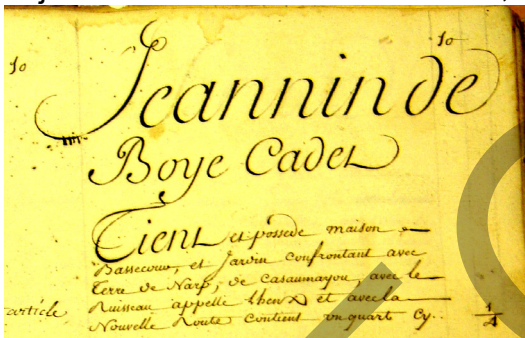 10 10
Jeannin de
Boye Cadet
Tient et possede maison
Bassecour, et Jardin confrontant avec
Terre de Narp, de Casaumayou, avec le
article Ruisseau appellé et avec la
Nouvelle Route Contient un quart Cy.. 1/4